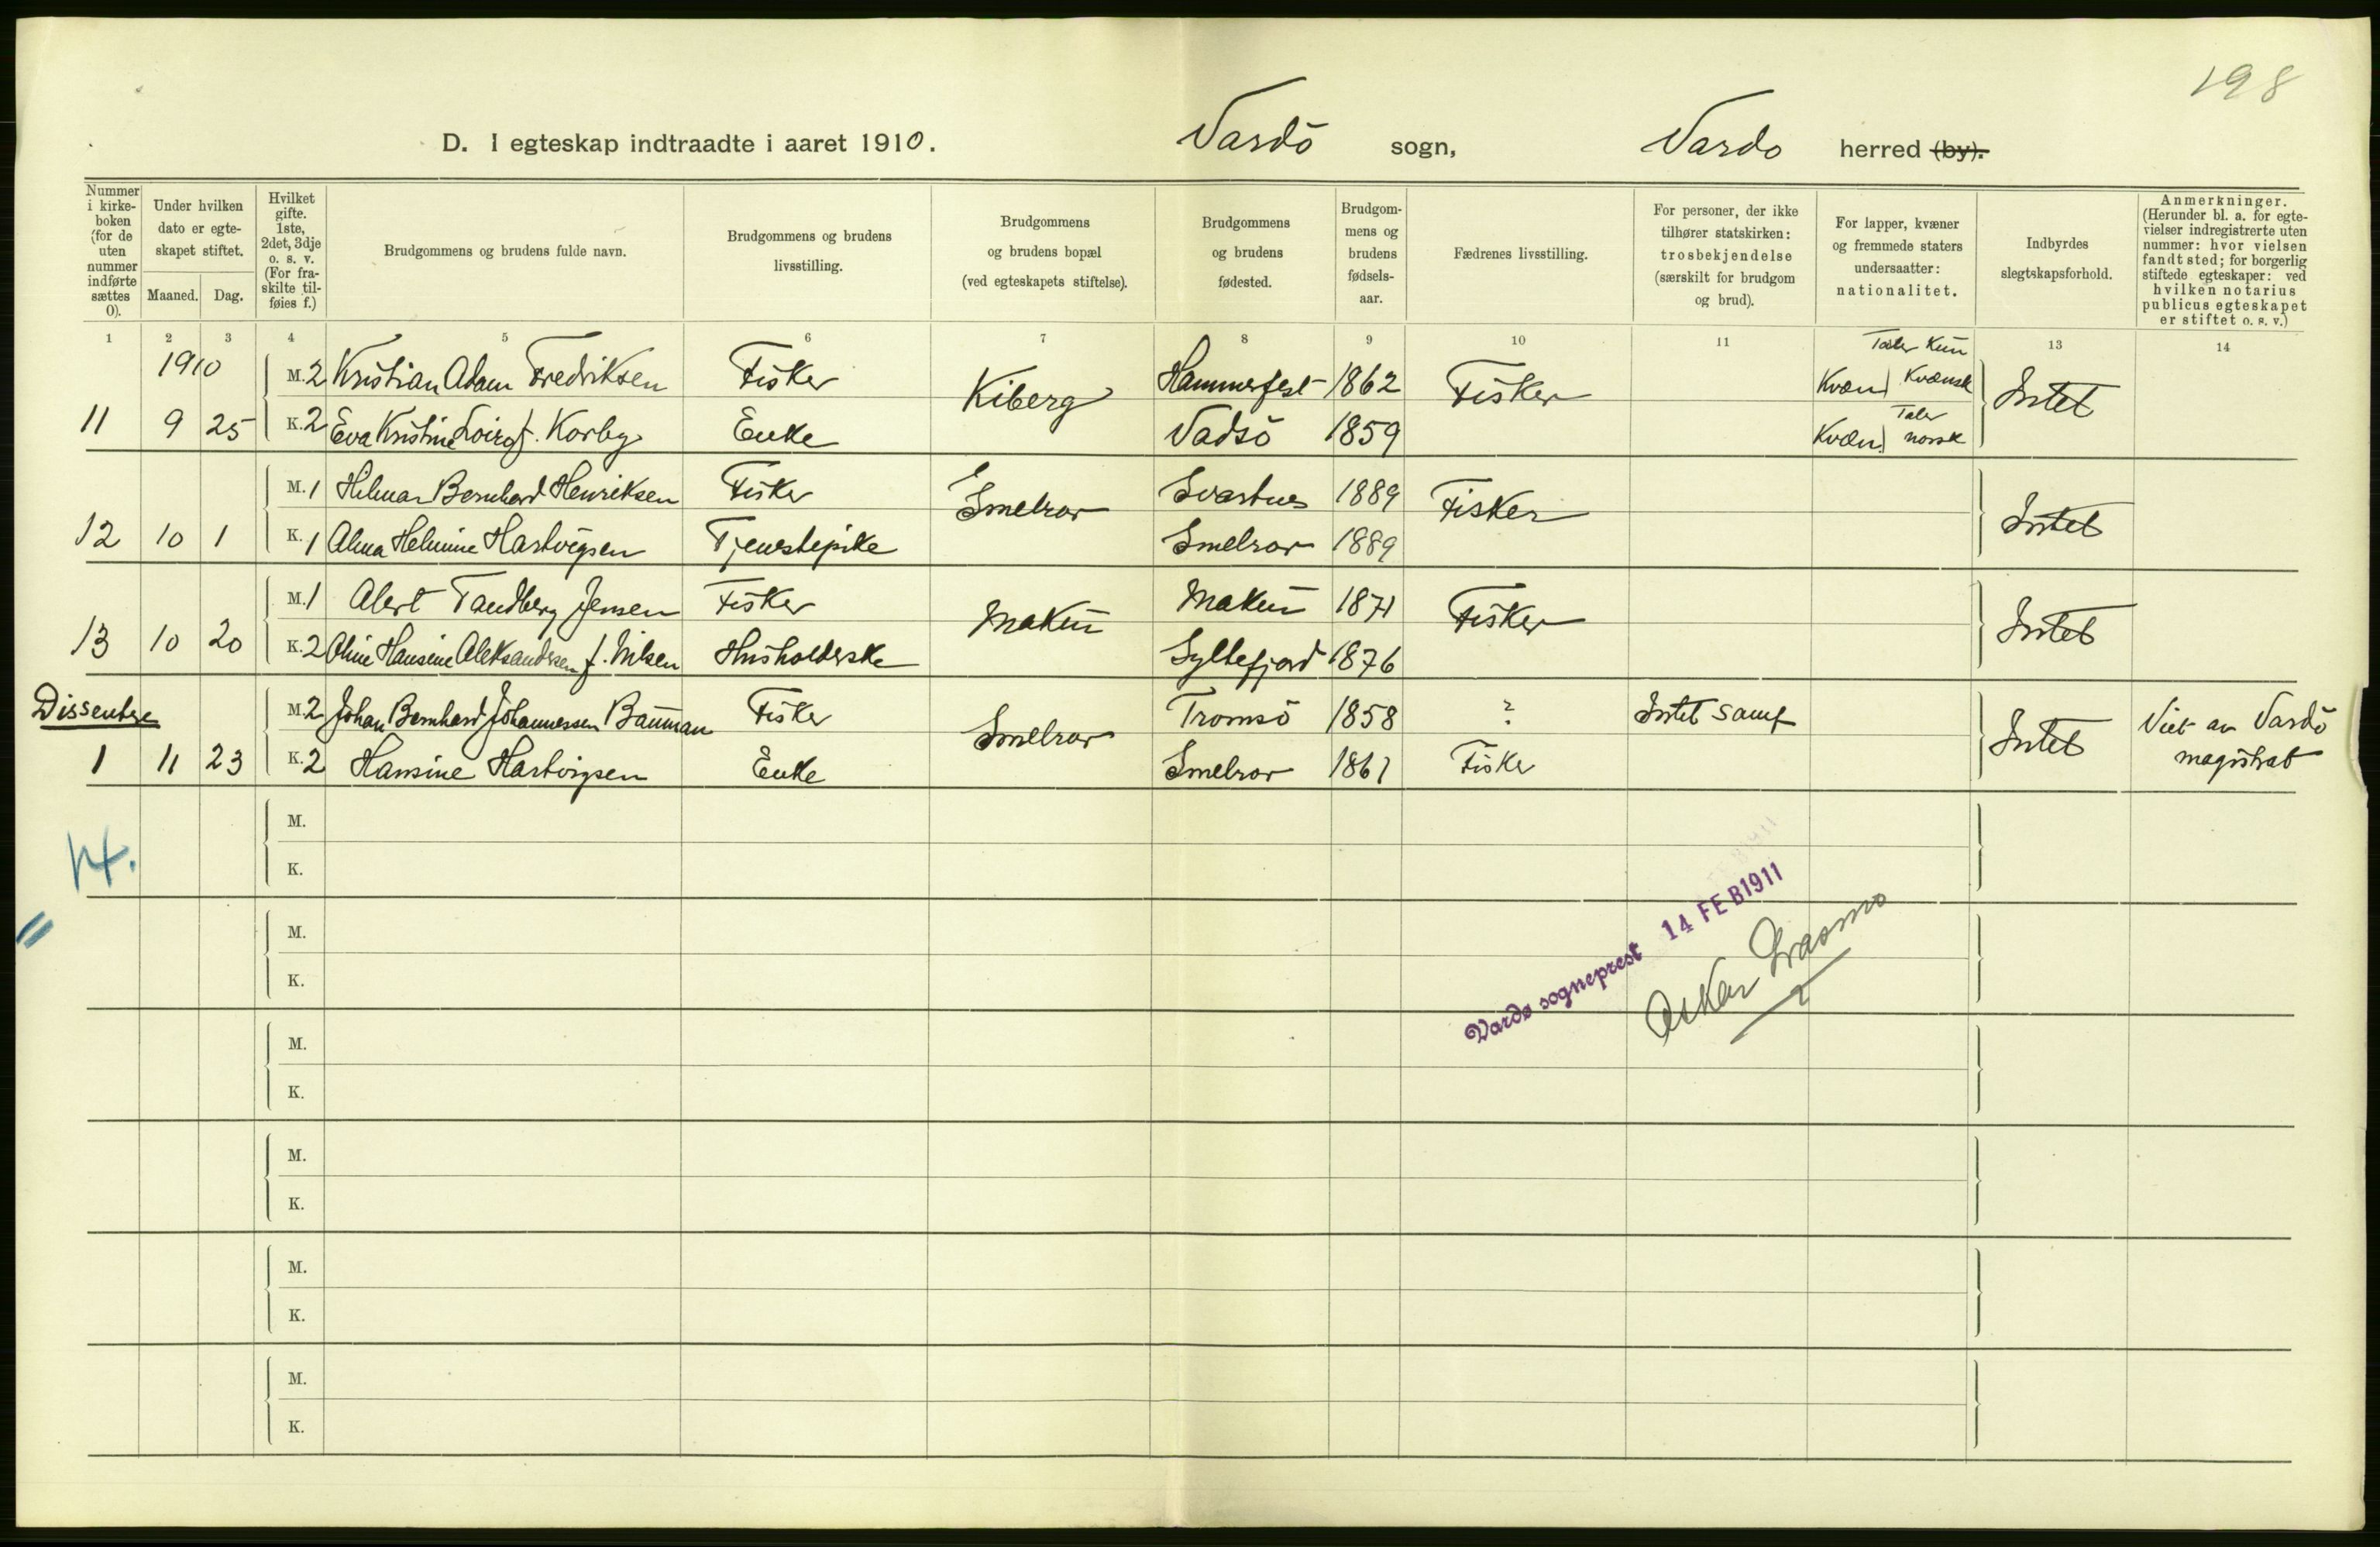 198
D. I egteskap indtraadte i aaret 1910. Vardö sogn, Vardo herred (by).
Nummer i kirke-boken (for de uten nummer indførte sættes 0).
Under hvilken dato er egte-skapet stiftet.
Maaned. Dag.
Hvilket gifte. 1ste, 2det, 3dje o. s. v. (For fra-skilte til-føies f.)
Brudgommens og brudens fulde navn.
Brudgommens og brudens livsstilling.
Brudgommens og brudens bopæl (ved egteskapets stiftelse).
Brudgommens og brudens fødested.
Brudgom-mens og brudens fødsels-aar.
Fædrenes livsstilling.
For personer, der ikke tilhører statskirken: trosbekjendelse (særskilt for brudgom og brud).
For lapper, kvæner og fremmede staters undersaatter: nationalitet.
Indbyrdes slegtskapsforhold.
Anmerkninger. (Herunder bl. a. for egte-vielser indregistrerte uten nummer: hvor vielsen fandt sted; for borgerlig stiftede egteskaper: ved hvilken notarius publicus egteskapet er stiftet o. s. v.)
1 2 3 4 5 6 7 8 9 10 11 13 14
1910 M. 2 Kristian Adam Fredriksen Fisker Kiberg Hammerfest 1862 Fisker Kvæn Taler kun Kvænsk Intet
11 9 25 K. 2 Eva Kristine f. Korby Enke Vadsö 1859 Kvæn Taler norsk
M. 1 Hilmar Bernhard Henriksen Fisker Smelror Svartnes 1889 Fisker Intet
12 10 1 K. 1 Alma Helmine Hartvigsen Tjenestepike Smelror 1889
M. 1 Alert Tandberg Jensen Fisker Makur 1871 Fisker Intet
13 10 20 K. 2 Oline Hansine Aleksandersen f. Nilsen Husholderske Syltefjord 1876
Dissentere M. 2 Johan Bernhard Johannessen Bauman Fisker Smelror Tromsö 1858 ? Intet samf Intet Viet av Vardö magistrat
1 11 23 K. 2 Hansine Hartvigsen Enke Smelror 1861 Fisker
M.
14.
K.
M.
K.
Vardø sogneprest 14 FEB 1911
M.
K.
M.
K.
M.
K.
M.
K.